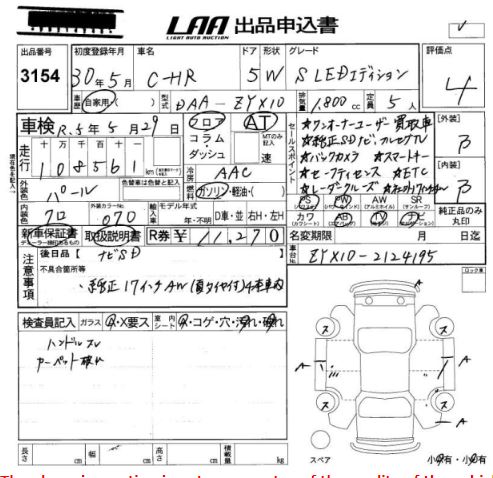 LAA 出品申込書
LIGHT AUTO AUCTION
出品番号
3154
初度登録年月
30年5月
車名
C-HR
ドア 形状
5W
グレード
S LEDエディション
評価点
4
車歴 自家用・( )
型式
DAA-ZYX10
排気量 1,800 cc
定員 5人
車検 R.5年5月29日
フロア
コラム・ダッシュ
AT
MTのみ記入
速
セールスポイント
★ワンオーナーユーザー買取車
★純正SDナビ、フルセグTV
★バックカメラ ★スマートキー
★セーフティセンス ★ETC
★レーダークルーズ
【外装】
B
【内装】
B
走行
十万千百十一
108561
km
冷房 AAC
外装色 パール
色替車は色替と記入
燃料 ガソリン・軽油・( )
PS PW AW SR
カワ AB TV ナビ
純正品のみ丸印
内装色 クロ
外装カラーNo. 070
輸入車 モデル年式
年・不明
D車・並 右H・左H
新車保証書
取扱説明書
R券 ¥11,270
名変期限 月 日迄
車台No. ZYX10-2124195
注意事項
後日品【ナビSD】
不具合箇所等
・純正17インチAW(夏タイヤ付)4本車内
検査員記入
ガラス A・X要ス
室内シート A・コゲ・穴・汚れ・破れ
ハンドルスレ
カーペット破れ
ロック車
ス ス
A A A
ス ス
A A
長さ 幅 高さ 積載量
cm cm cm kg
スペア
小A有・小B有